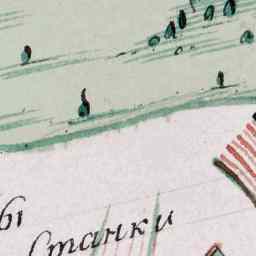 ы
Станки